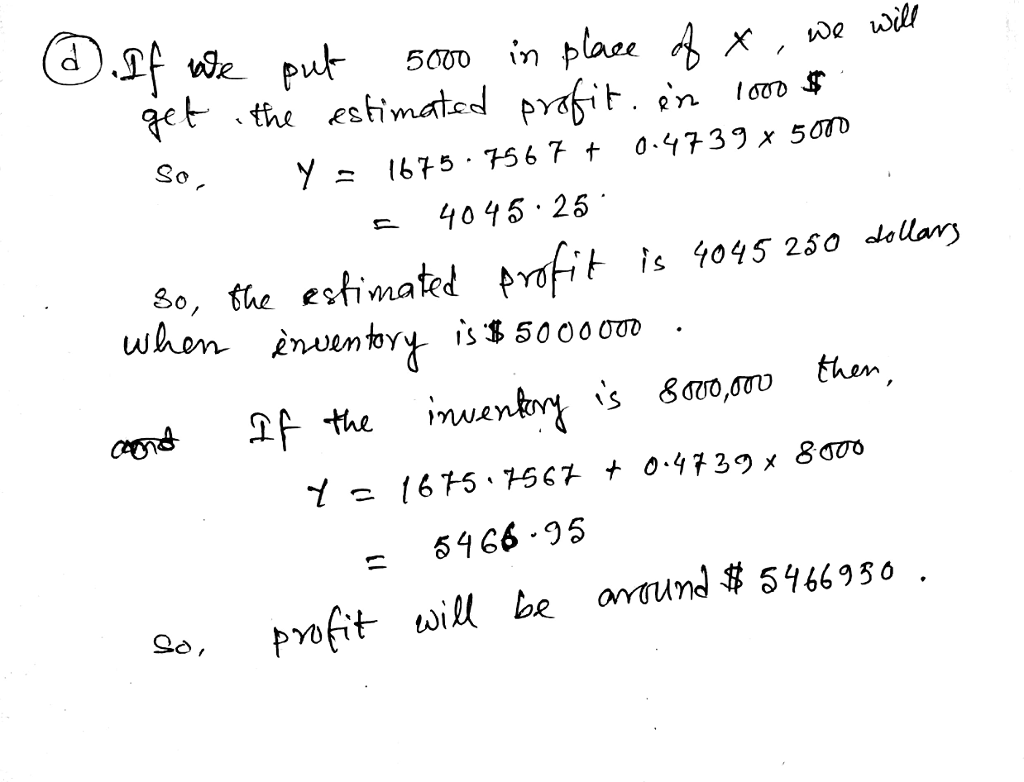 (d). If we put 5000 in place of X, we will
get the estimated profit. in 1000 $
So, Y = 1675.7567 + 0.4739 x 5000
= 4045.25
So, the estimated profit is 4045 250 dollars
when inventory is $ 5000000 .
If the inventory is 8000,000 then,
Y = 1675.7567 + 0.4739 x 8000
= 5466.95
So, profit will be around $ 5466950 .